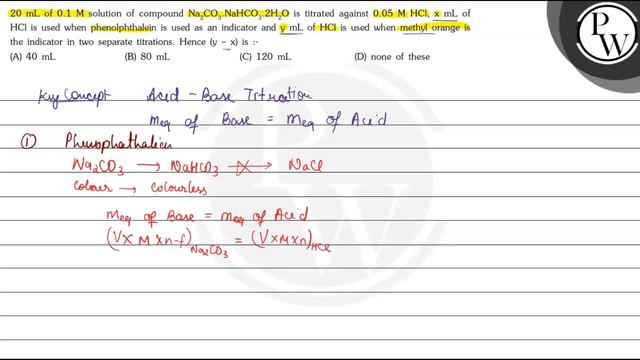 20 mL of 0.1 M solution of compound Na₂CO₃.NaHCO₃.2H₂O is titrated against 0.05 M HCl, x mL of
HCl is used when phenolphthalein is used as an indicator and y mL of HCl is used when methyl orange is
the indicator in two separate titrations. Hence (y – x) is :-
(A) 40 mL (B) 80 mL (C) 120 mL (D) none of these
Key Concept Acid - Base Titration
meq of Base = meq of Acid
① Phenophathalien
Na₂CO₃ → NaHCO₃ → NaCl
Colour → Colourless
meq of Base = meq of Acid
(V × M × n-f)Na₂CO₃ = (V × M × n)HCl
PW